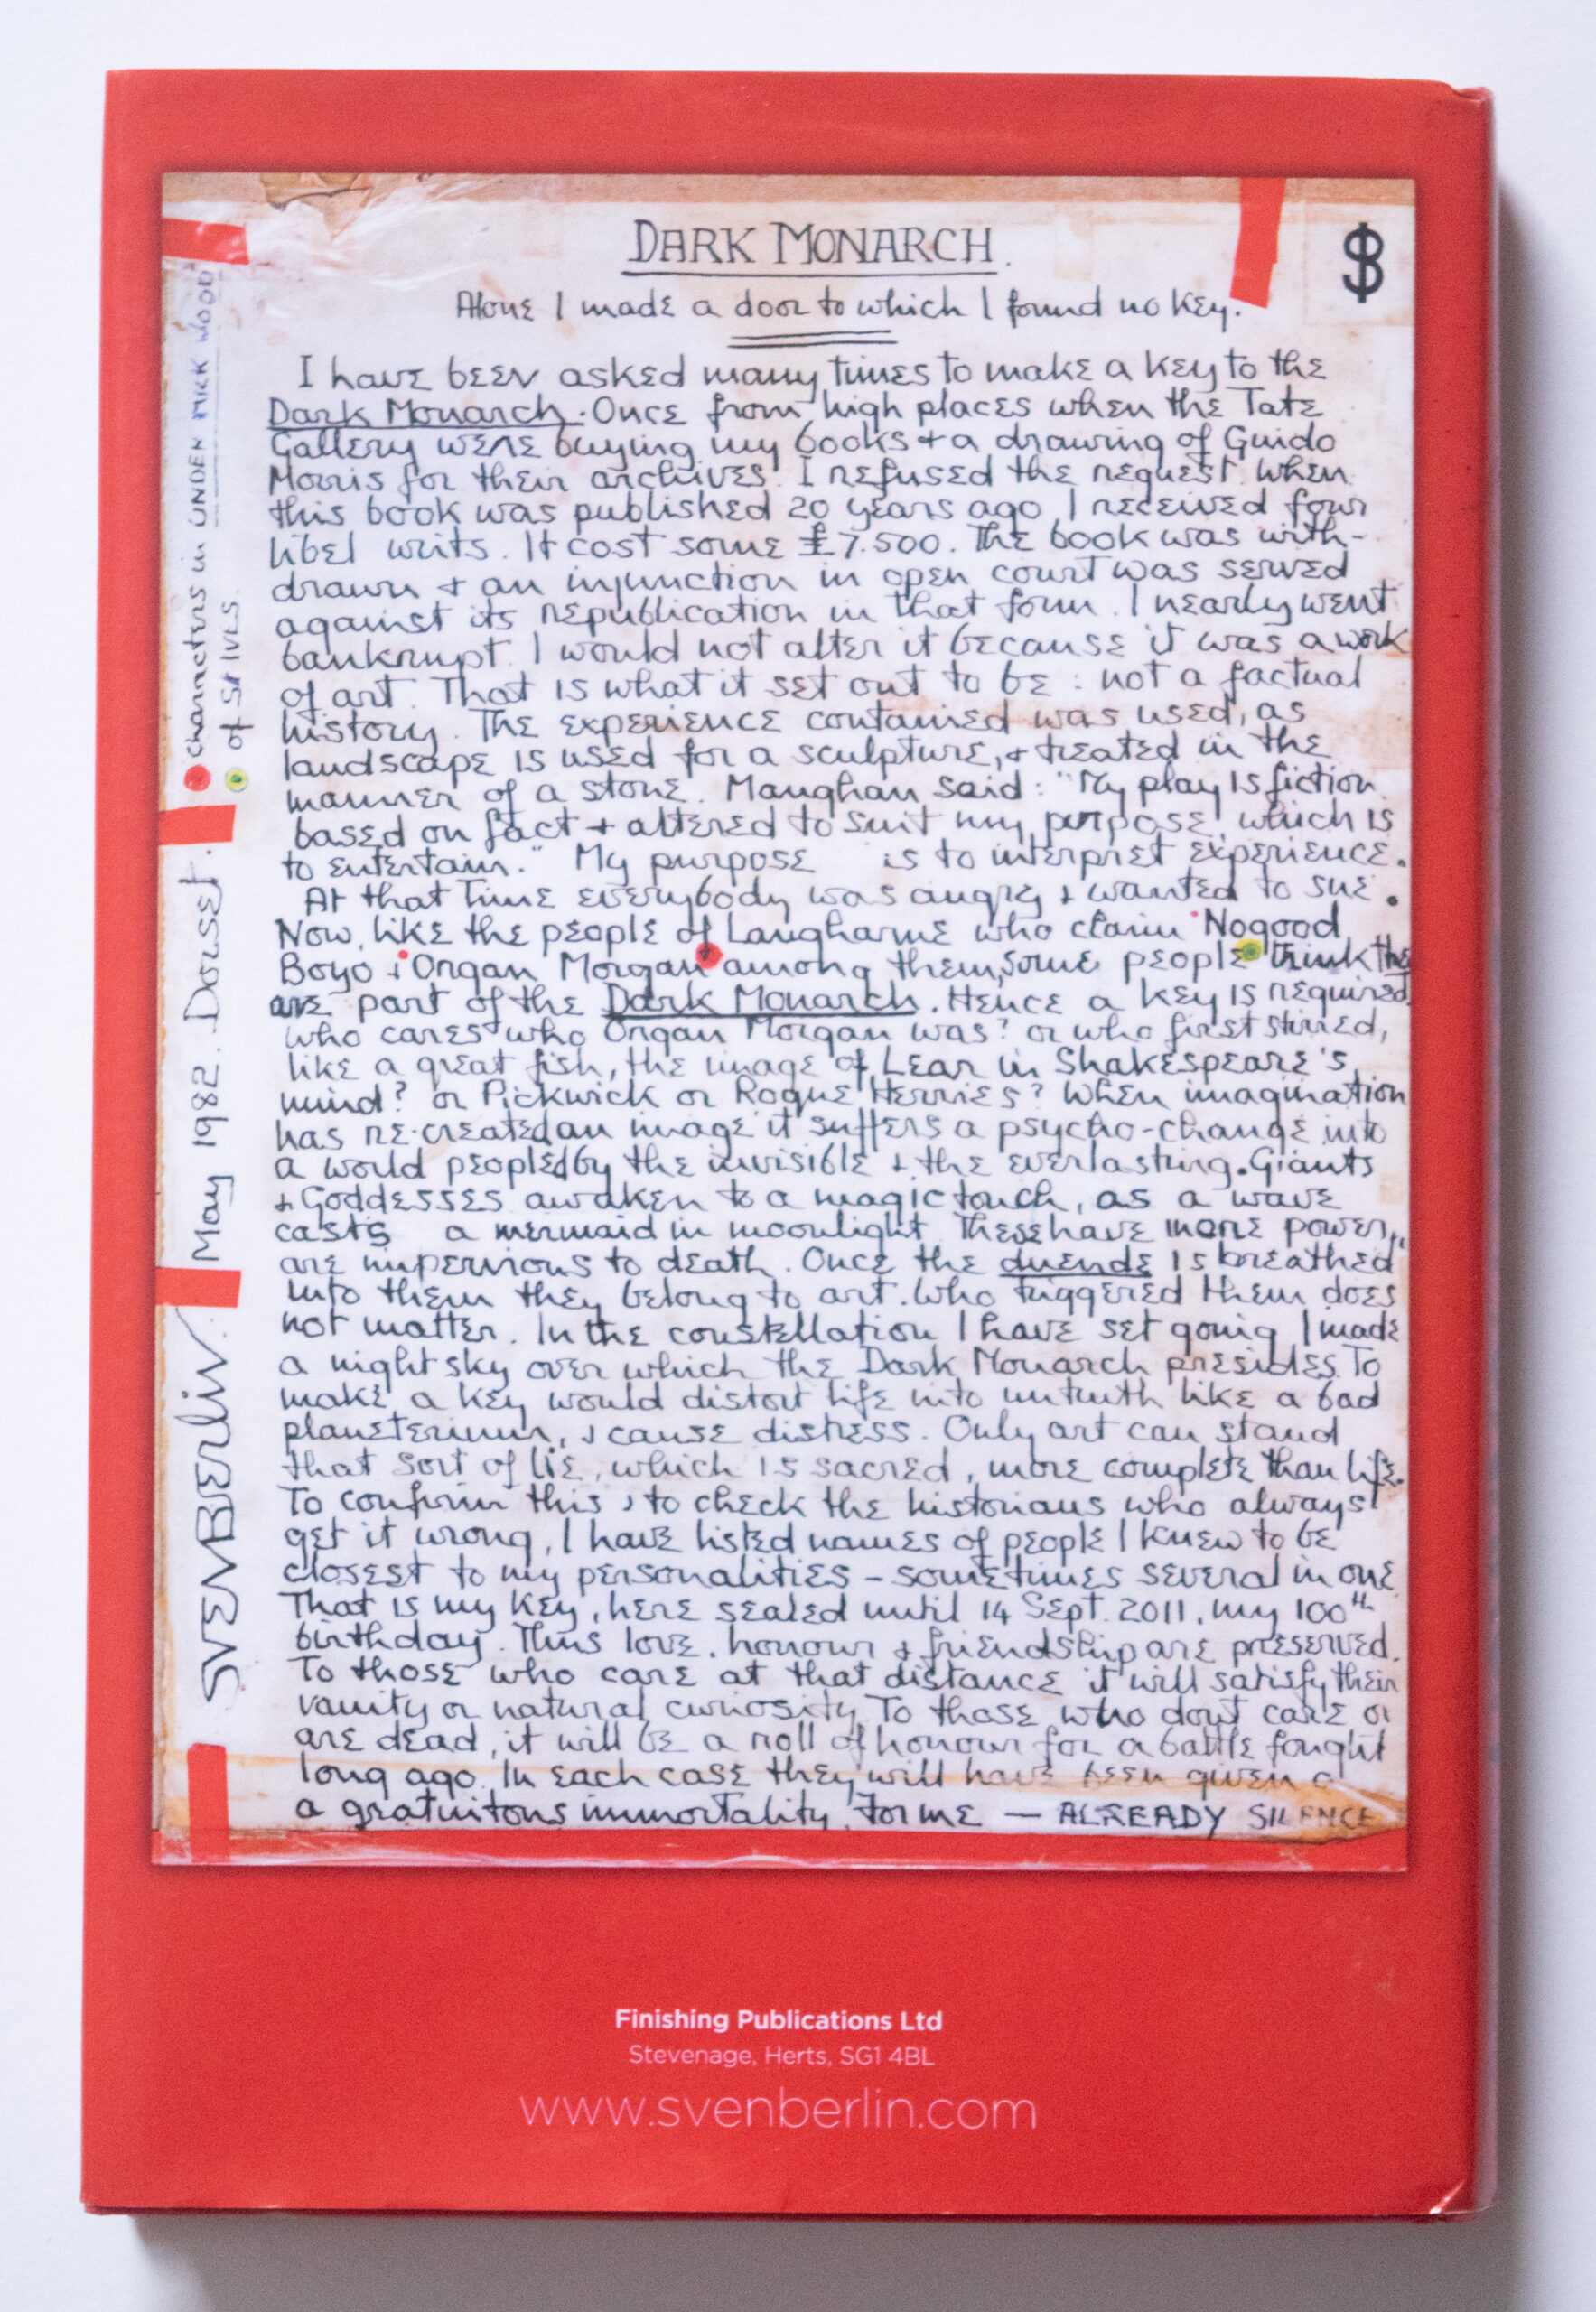 DARK MONARCH.
Alone I made a door to which I found no key.
I have been asked many times to make a key to the
Dark Monarch. Once from high places when the Tate
Gallery were buying my books + a drawing of Guido
Morris for their archives. I refused the request. When
this book was published 20 years ago I received four
libel writs. It cost some £7.500. The book was with-
drawn + an injunction in open court was served
against its republication in that form. I nearly went
bankrupt. I would not alter it because it was a work
of art. That is what it set out to be: not a factual
history. The experience contained was used, as
landscape is used for a sculpture, + treated in the
manner of a stone. Maugham said: "My play is fiction
based on fact + altered to suit my purpose, which is
to entertain." My purpose is to interpret experience.
At that time everybody was angry + wanted to sue.
Now, like the people of Laugharne who claim Nogood
Boyo + Organ Morgan among them, some people think they
are part of the Dark Monarch. Hence a key is required.
Who cares who Organ Morgan was? or who first stirred,
like a great fish, the image of Lear in Shakespeare's
mind? or Pickwick or Rogue Herries? When imagination
has re-created an image it suffers a psycho-change into
a world peopled by the invisible + the everlasting. Giants
+ Goddesses awaken to a magic touch, as a wave
casts a mermaid in moonlight. These have more power,
are impervious to death. Once the duende is breathed
into them they belong to art. Who triggered them does
not matter. In the constellation I have set going I made
a night sky over which the Dark Monarch presides. To
make a key would distort life into untruth like a bad
planeterium, + cause distress. Only art can stand
that sort of lie, which is sacred, more complete than life.
To confirm this, to check the historians who always
get it wrong, I have listed names of people I knew to be
closest to my personalities - sometimes several in one.
That is my key, here sealed until 14 Sept. 2011, my 100th
birthday. Thus love, honour + friendship are preserved.
To those who care at that distance it will satisfy their
vanity or natural curiosity. To those who don't care or
are dead, it will be a roll of honour for a battle fought
long ago. In each case they will have been given a
a gratuitous immortality. For me — ALREADY SILENCE
characters in UNDER MILK WOOD
of St IVES.
SVEN BERLIN. May 1982. Dorset.
Finishing Publications Ltd
Stevenage, Herts, SG1 4BL
www.svenberlin.com